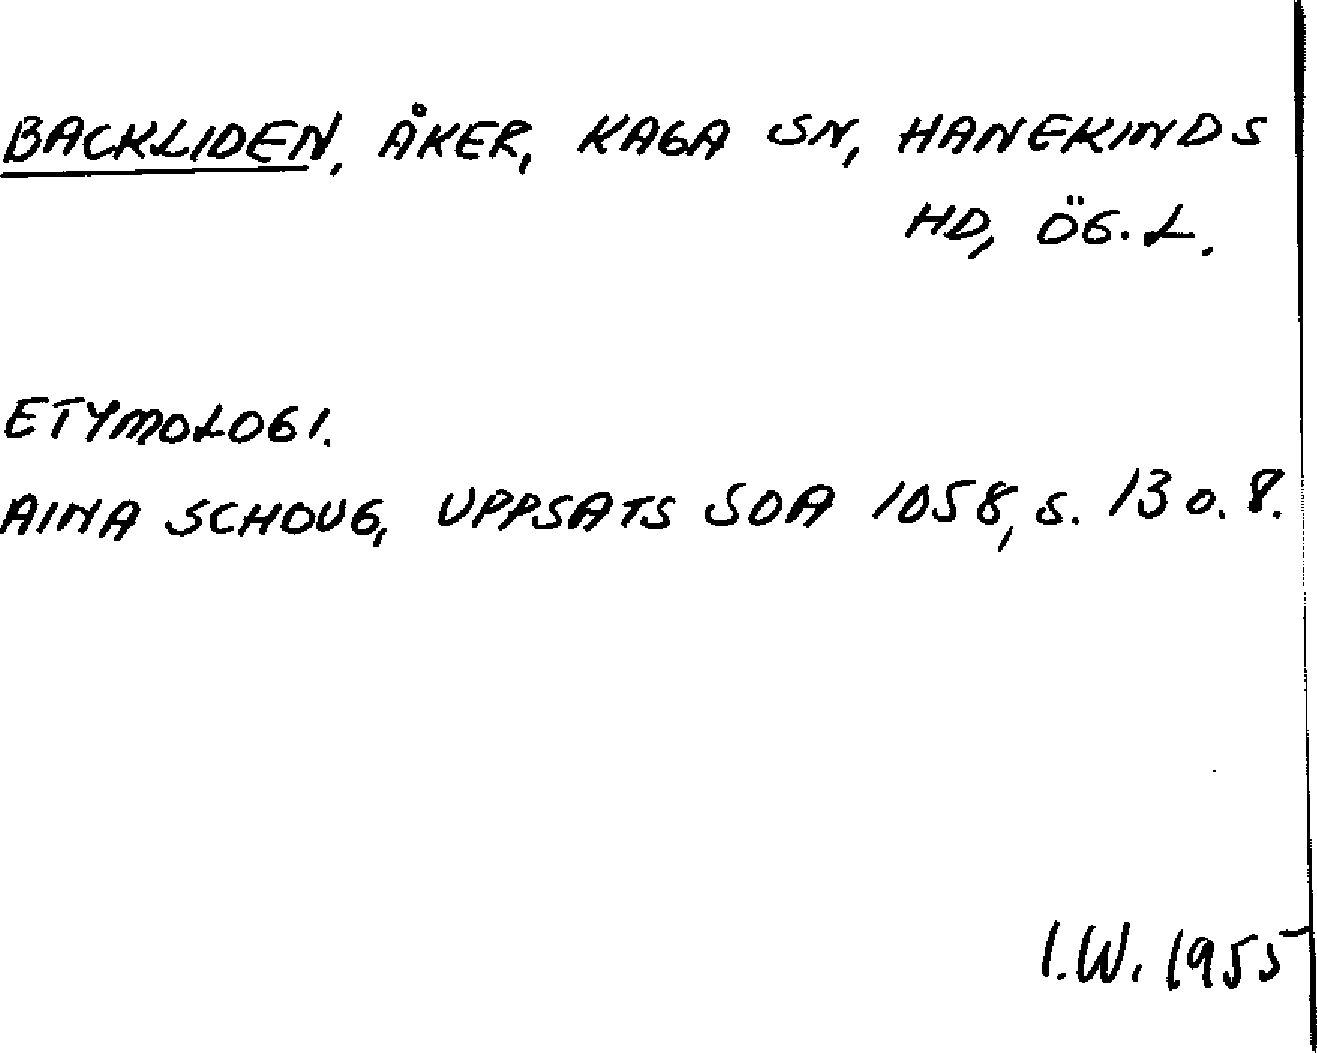 BACKLIDEN, ÅKER, KAGA SN, HANEKINDS
HD, ÖG. L.
ETYMOLOGI.
AINA SCHOUG, UPPSATS SOA 1058, S. 13 O. 8.
I.W. 1955